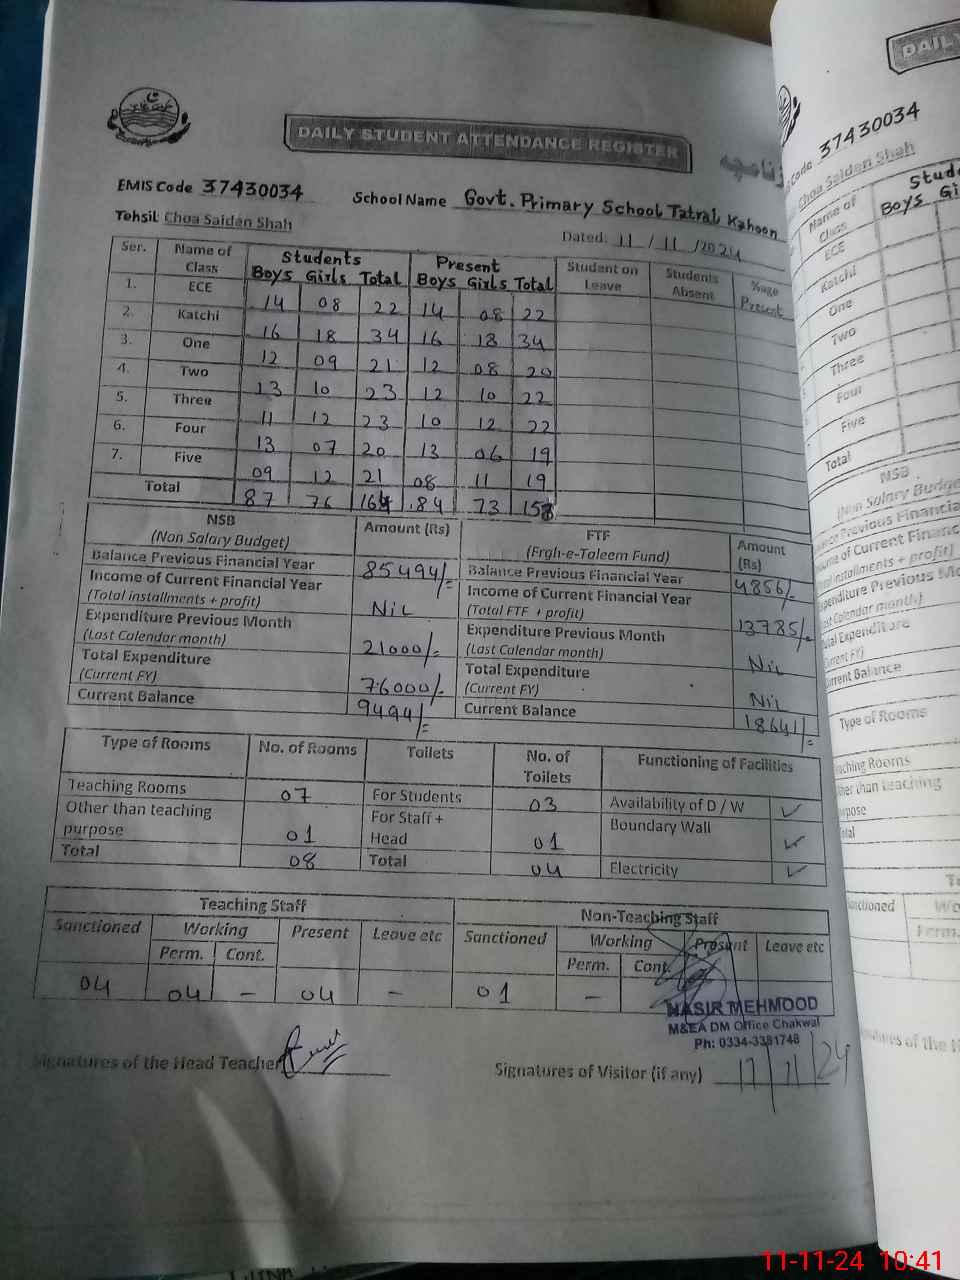 DAILY STUDENT ATTENDANCE REGISTER
EMIS Code 37430034 School Name Govt. Primary School Tatral Kahoon
Tehsil Choa Saiden Shah Dated: 11/11/2024
Ser. Name of Class Students Boys Girls Total Present Boys Girls Total Student on Leave Students Absent %age Present
1. ECE 14 08 22 14 08 22
2. Katchi 16 18 34 16 18 34
3. One 12 09 21 12 08 20
4. Two 13 10 23 12 10 22
5. Three 11 12 23 10 12 22
6. Four 13 07 20 13 06 19
7. Five 09 12 21 08 11 19
Total 87 76 164 84 73 158
NSB (Non Salary Budget) Amount (Rs) FTF (Frgh-e-Taleem Fund) Amount (Rs)
Balance Previous Financial Year 85494/= Balance Previous Financial Year 4856/-
Income of Current Financial Year (Total installments + profit) Nil Income of Current Financial Year (Total FTF + profit) 13785/=
Expenditure Previous Month (Last Calendar month) 21000/= Expenditure Previous Month (Last Calendar month) Nil
Total Expenditure (Current FY) 76000/- Total Expenditure (Current FY) Nil
Current Balance 9494/= Current Balance 18641/=
Type of Rooms No. of Rooms Toilets No. of Toilets Functioning of Facilities
Teaching Rooms 07 For Students 03 Availability of D / W ✓
Other than teaching purpose 01 For Staff + Head 01 Boundary Wall ✓
Total 08 Total 04 Electricity ✓
Teaching Staff Non-Teaching Staff
Sanctioned Working Present Leave etc Sanctioned Working Present Leave etc
Perm. Cont. Perm. Cont.
04 04 - 04 - 01 -
NASIR MEHMOOD
M&EA DM Office Chakwal
Ph: 0334-3381748
Signatures of the Head Teacher
Signatures of Visitor (if any) 11/11/24
DAILY
Code 37430034
Choa Saiden Shah
Name of Class
Boys
ECE
Katchi
One
Two
Three
Four
Five
Total
NSB
(Non Salary Budget
Current Balance
Type of Rooms
11-11-24 10:41